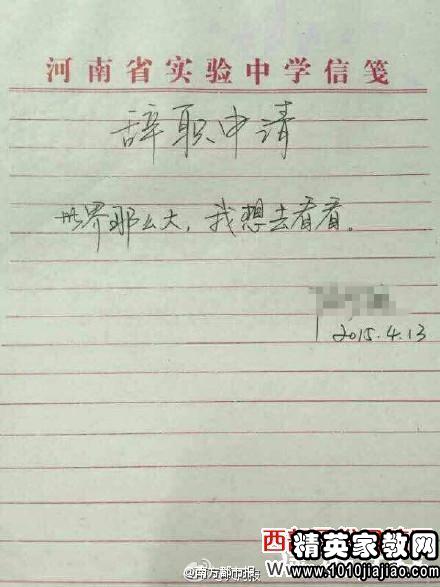 河南省实验中学信笺
辞职申请
世界那么大，我想去看看。
2015.4.13
@南方都市报
西
精英家教网
www.1010jiajiao.com